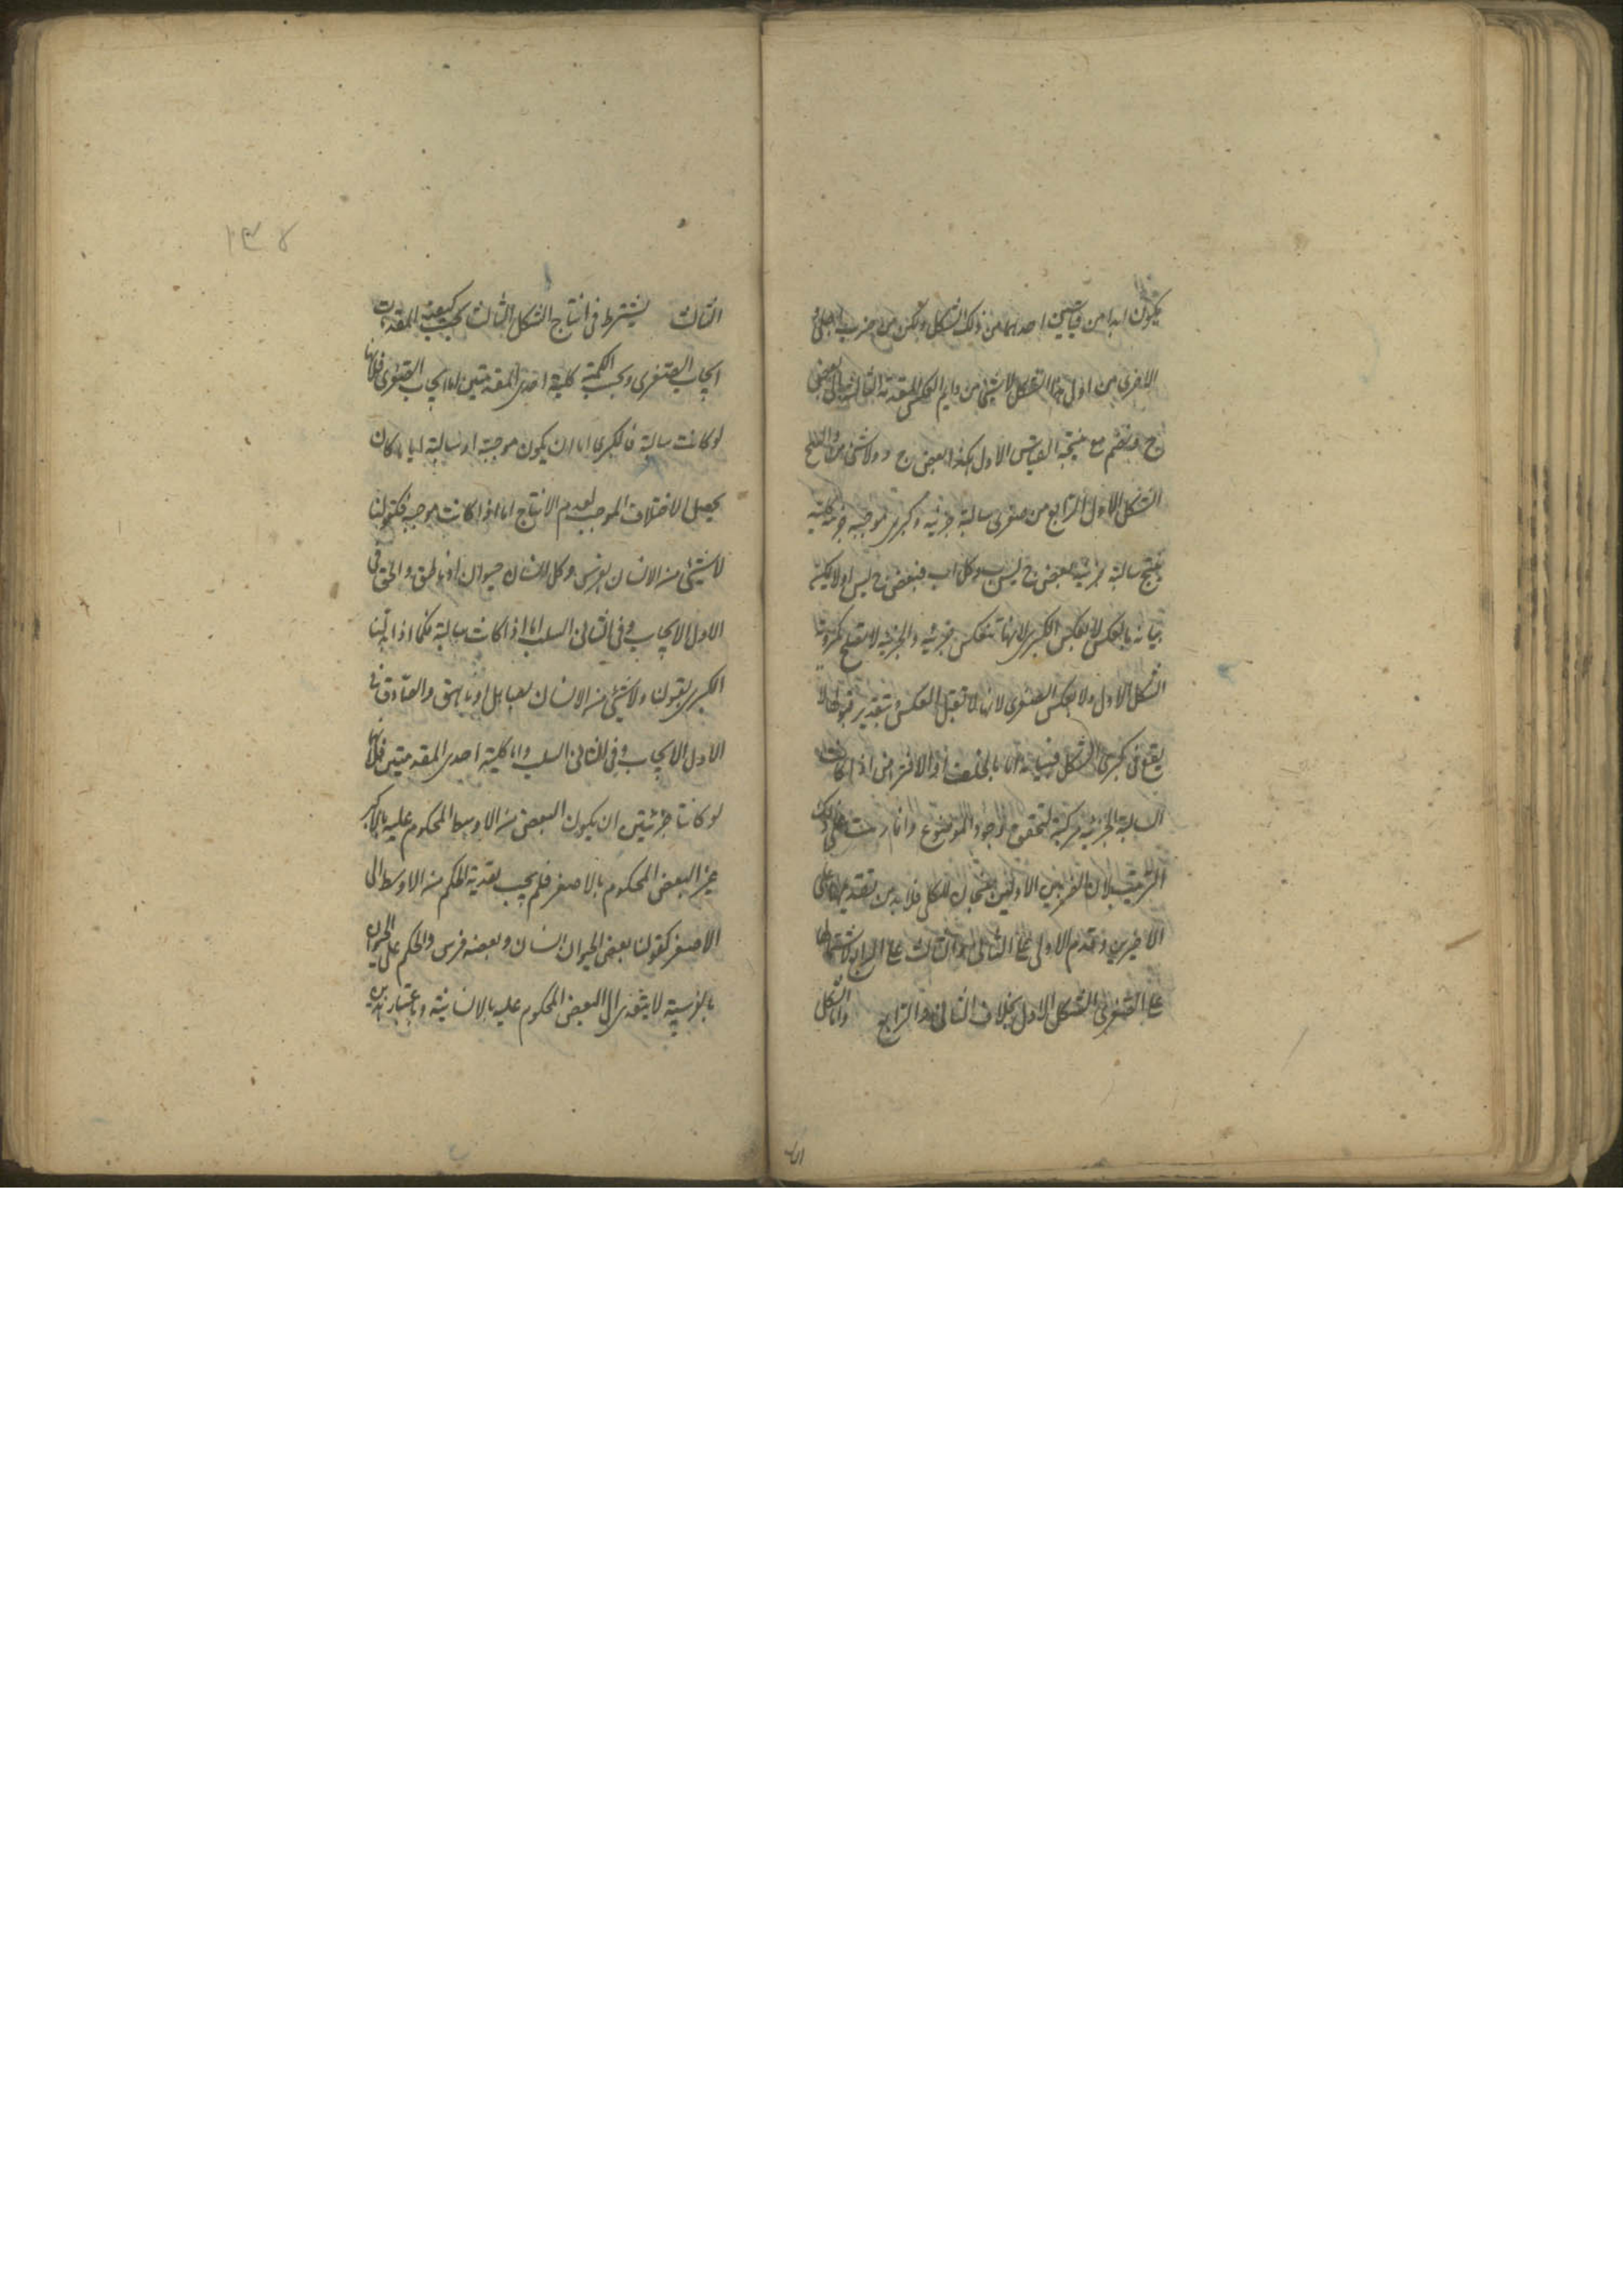 يكون ابدا من قياسين احدهما من ذلك الشكل ولكن من ضرب اجلى و
الاخرى من اول هذا الشكل لا شىء من دايم العكس المقدمة الثانية الى بعض
ج وينضم مع نتيجة القياس الاول هكذا بعض ج د ولا شىء من
الشكل الاول الرابع من صغرى سالبة جزئية وكبرى موجبة كلية
ينتج سالبة جزئية بعض ج ليس ب وكل ا ب فبعض ج ليس ا ولا يمكن
بيانه بالعكس لا بعكس الكبرى لانها تنعكس جزئية والجزئية لا تصلح لكبروية
الشكل الاول ولا بعكس الصغرى لانها لا تقبل العكس وبتقدير قبولها لا
يقع فى كبرى الشكل فبيانه اما بالخلف او الافتراض اذا كانت
السالبة الجزئية مركبة لتحقق وجود الموضوع وانما رتبت على ذلك
الترتيب لان الضربين الاولين ينتجان للكلى فلا بد من تقديمهما على
الاخيرين وقدم الاول على الثانى والثالث على الرابع لاشتمالهما
على الصغرى الشكل الاول بخلاف الثانى والرابع واما الشكل
الثالث يشترط فى انتاج الشكل الثالث بحسب كيفية المقدمات
ايجاب الصغرى وبحسب الكمية كلية احدى المقدمتين اما ايجاب الصغرى فلانها
لو كانت سالبة فالكبرى اما ان يكون موجبة او سالبة وايا ما كان
يحصل الاختلاف الموجب لعدم الانتاج اما اذا كانت موجبة فكقولنا
لا شىء من الانسان بفرس وكل انسان حيوان او ناطق والحق فى
الاول الايجاب وفى الثانى السلب واما اذا كانت سالبة فكما اذا بدلنا
الكبرى بقولنا ولا شىء من الانسان بصاهل او ناهق والصادق فى
الاول الايجاب وفى الثانى السلب واما كلية احدى المقدمتين فلانهما
لو كانتا جزئيتين ان يكون البعض من الاوسط المحكوم عليه بالاكبر
غير البعض المحكوم بالاصغر فلم يجب تعدية الحكم من الاوسط الى
الاصغر كقولنا بعض الحيوان انسان وبعضه فرس والحكم على الحيوان
بالفرسية لا يتعدى الى البعض المحكوم عليه بالانسانية وباعتبار هذين